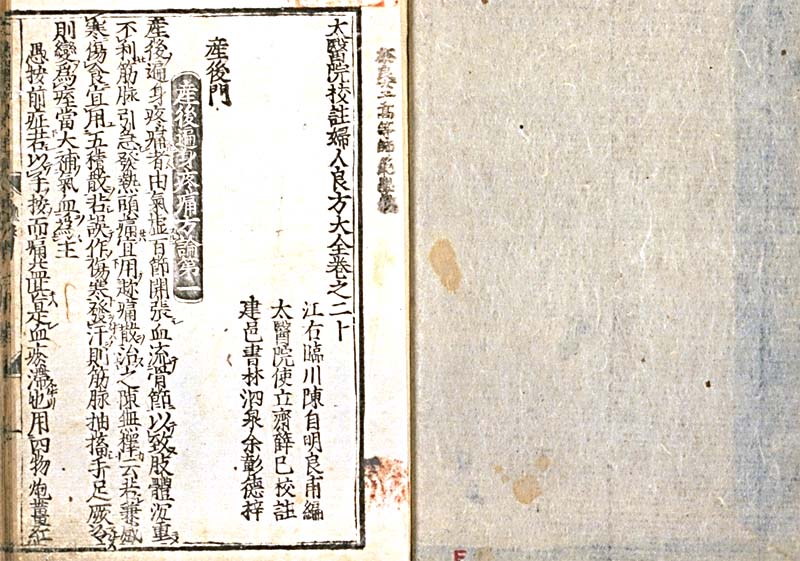 太醫院校註婦人良方大全卷之二十
江右臨川陳自明良甫編
太醫院使立齋薛已校註
建邑書林泗泉余彰德梓
産後門
産後遍身疼痛方論第一
産後遍身疼痛者由氣虚百節開張血流骨節以致肢體沉重
不利筋脉引急發熱頭痛宜用趂痛散治之陳無擇云若兼感
寒傷食宜用五積散若誤作傷寒發汗則筋脉抽搐手足厥冷
則變爲痓當大補氣血爲主
愚按前症若以手按而痛益此是血瘀滯也用四物炮薑紅